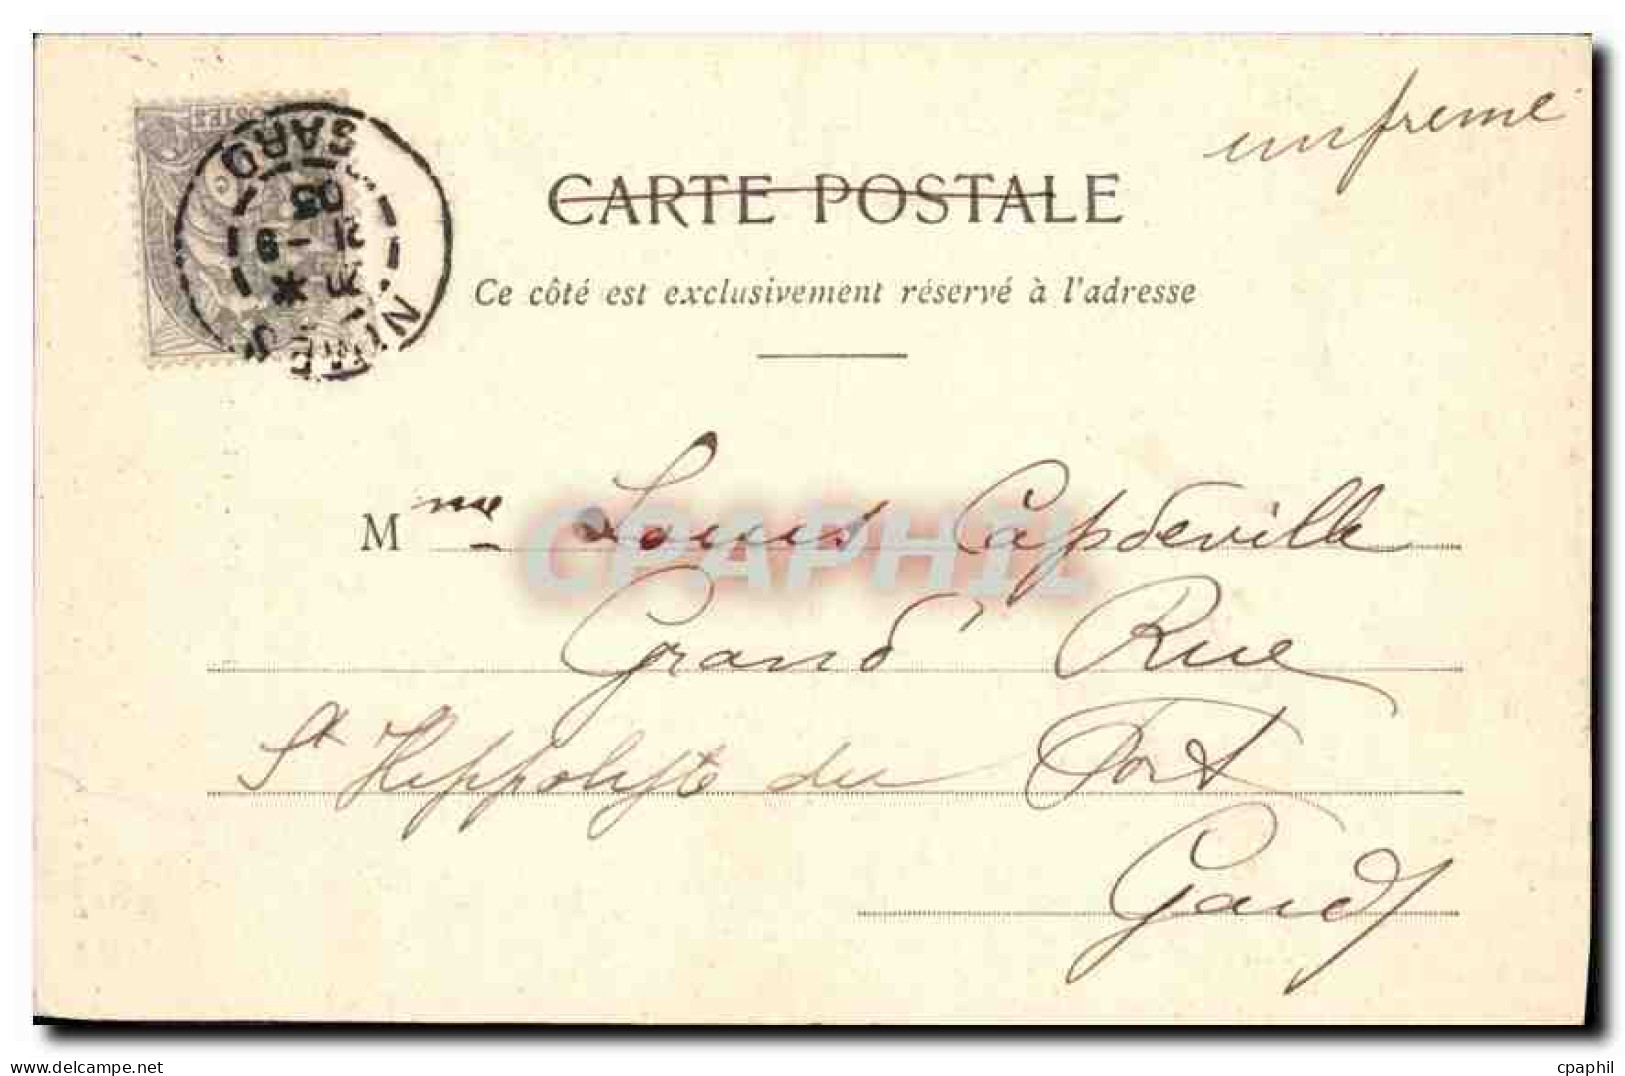 imprimé
CARTE POSTALE
Ce côté est exclusivement réservé à l'adresse
POSTES
GARD
05
NIMES
Mme Louis Capdeville
Grand' Rue
St Hippolyte du Fort
Gard
CPAPHIL
cpaphil